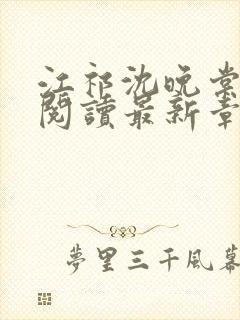 江祁沈晚棠
閱讀最新章
夢里三千風幕